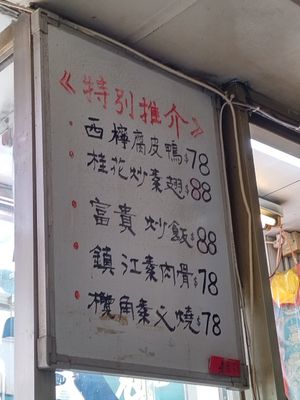 《特別推介》
西檸腐皮鴨$78
桂花炒素翅$88
富貴炒飯$88
鎮江素肉骨$78
欖角素叉燒$78